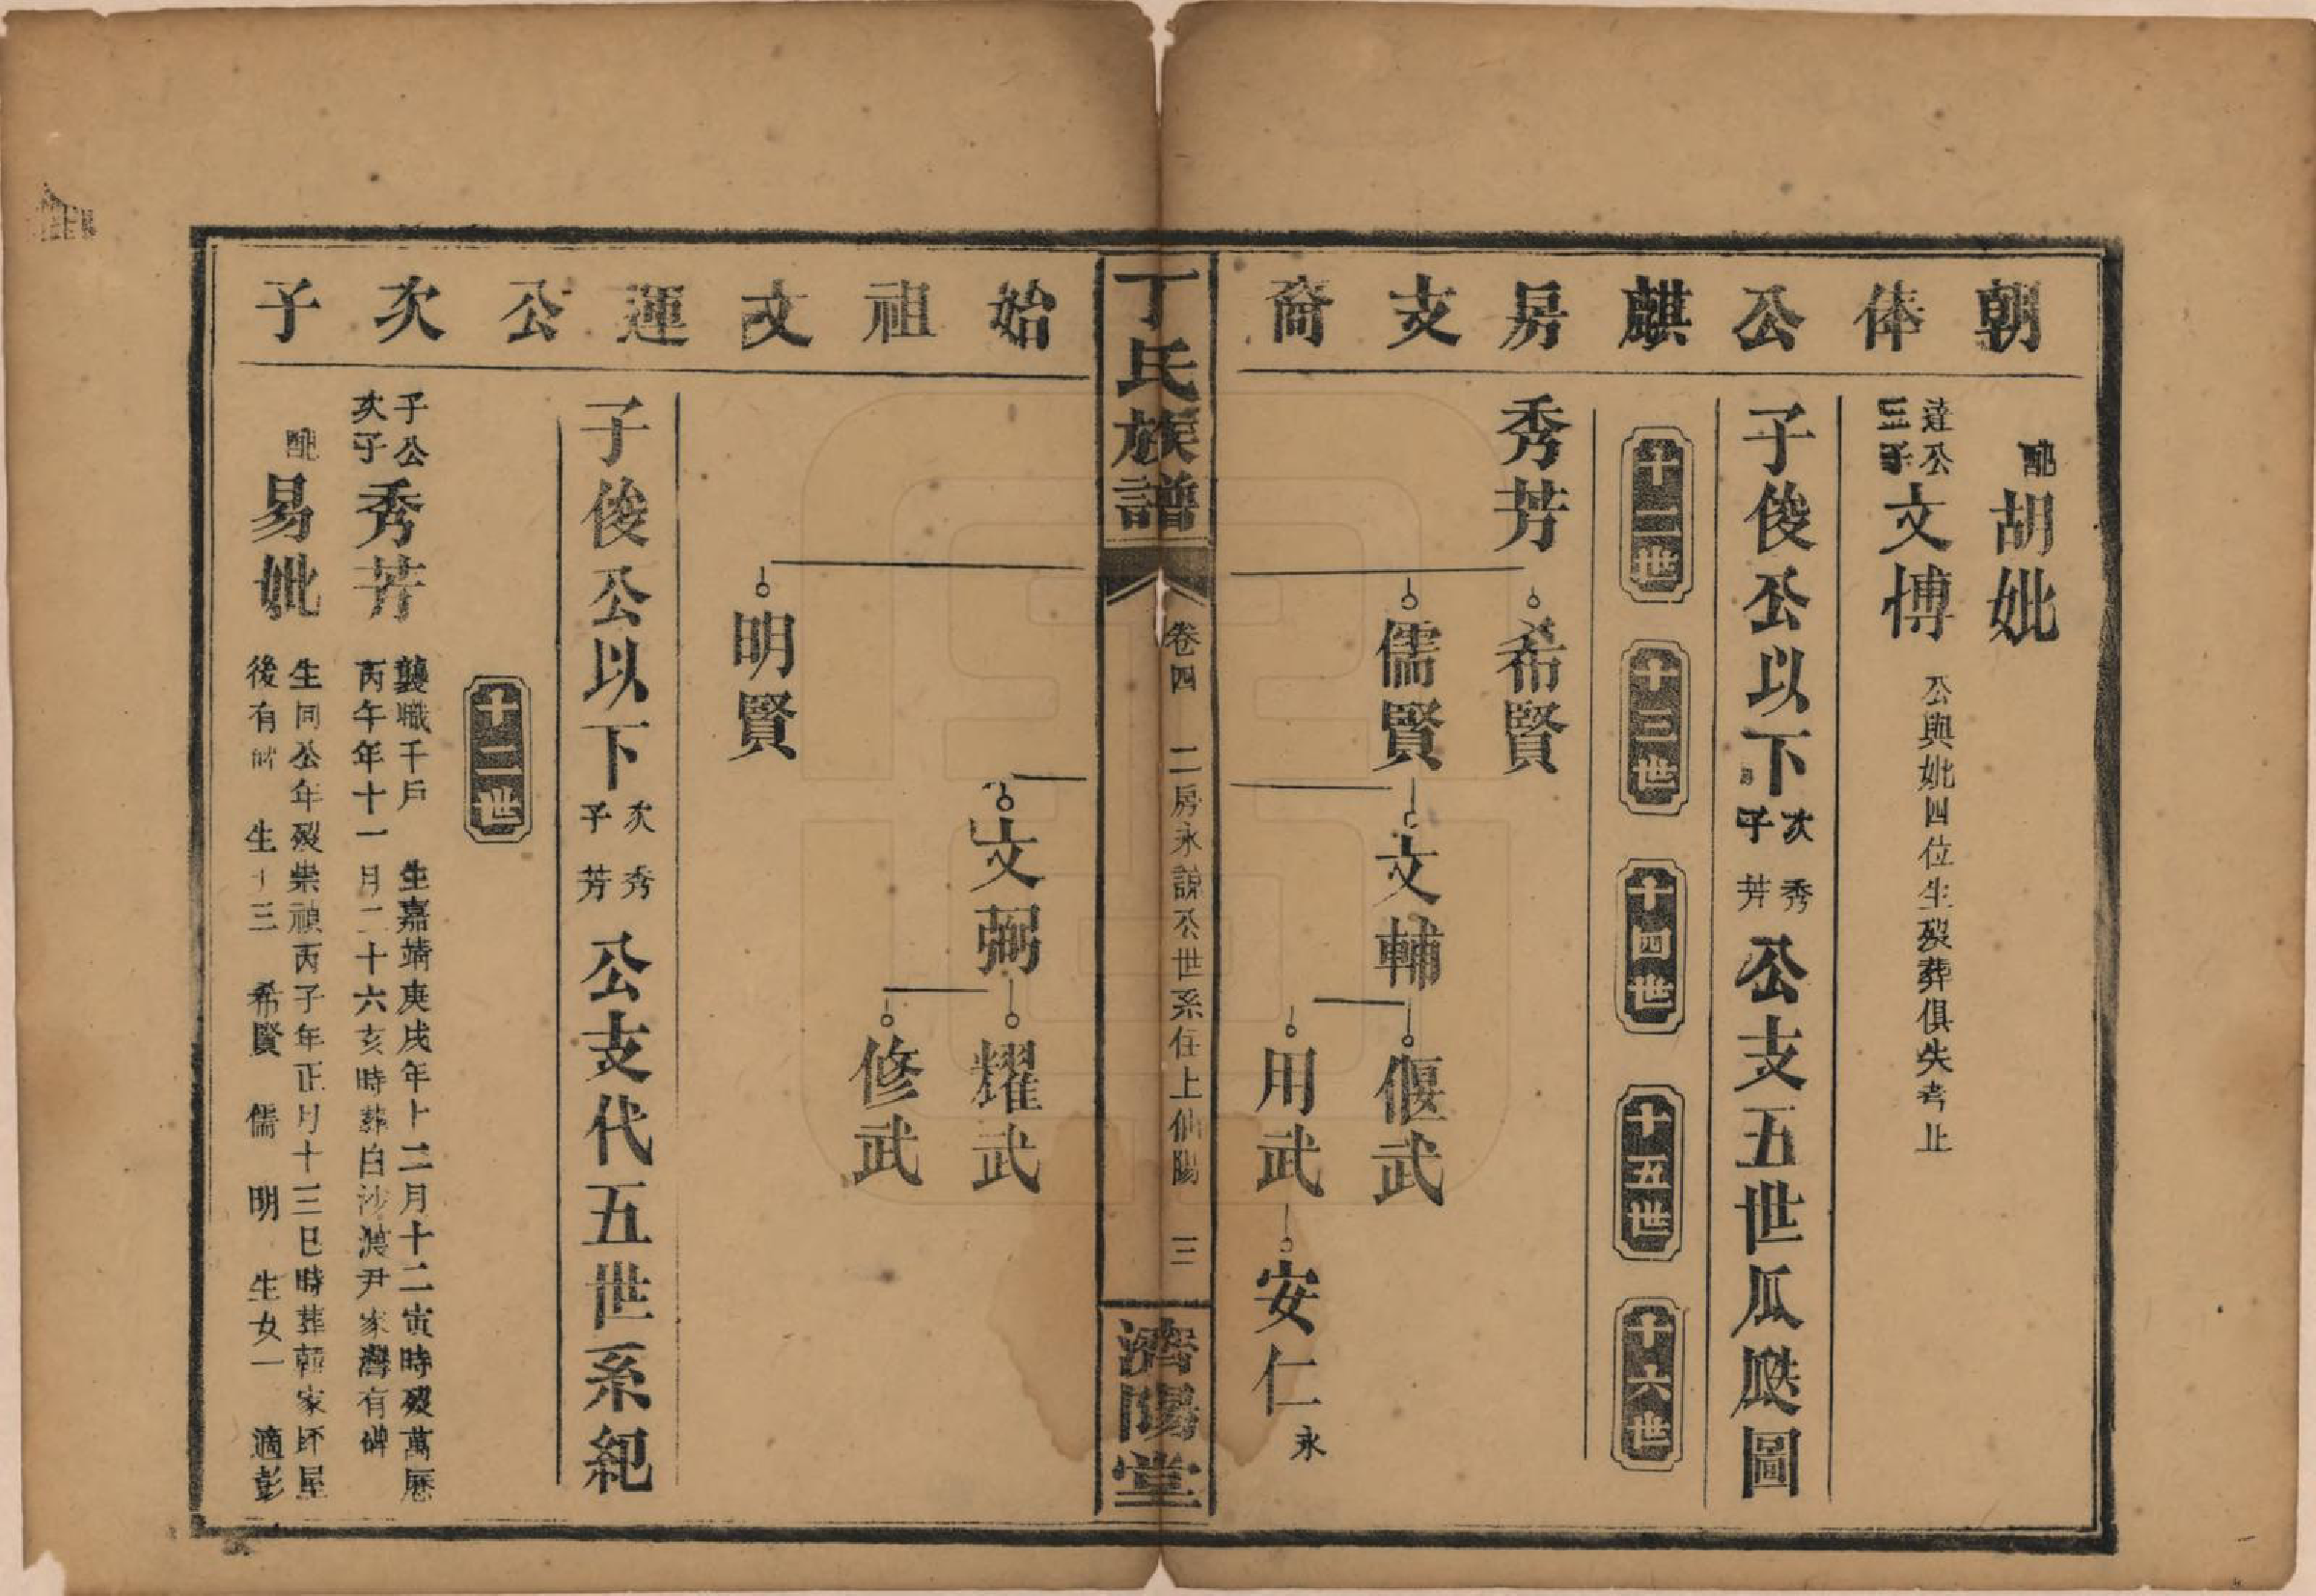 朝俸公麒房支裔
配胡妣
達公
五子
文博
公與妣四位生歿葬俱失考止
子俊公以下次子秀芳公支五世瓜瓞圖
十二世
十三世
十四世
十五世
十六世
秀芳
希賢
儒賢
文輔
偃武
用武
安仁
永
丁氏族譜
卷四
二房永諒公世系住上仙陽
三
濟陽堂
始祖文運公次子
文弼
耀武
修武
明賢
子俊公以下次子秀芳公支代五世系紀
十二世
子公
次子
秀芳
襲職千戶 生嘉靖庚戌年十二月十二寅時歿萬歷
丙午年十一月二十六亥時葬白沙渡尹家灣有碑
配易妣
生同公年歿崇禎丙子年正月十三巳時葬韓家坏屋
後有碑 生子三 希賢 儒 明 生女一 適彭